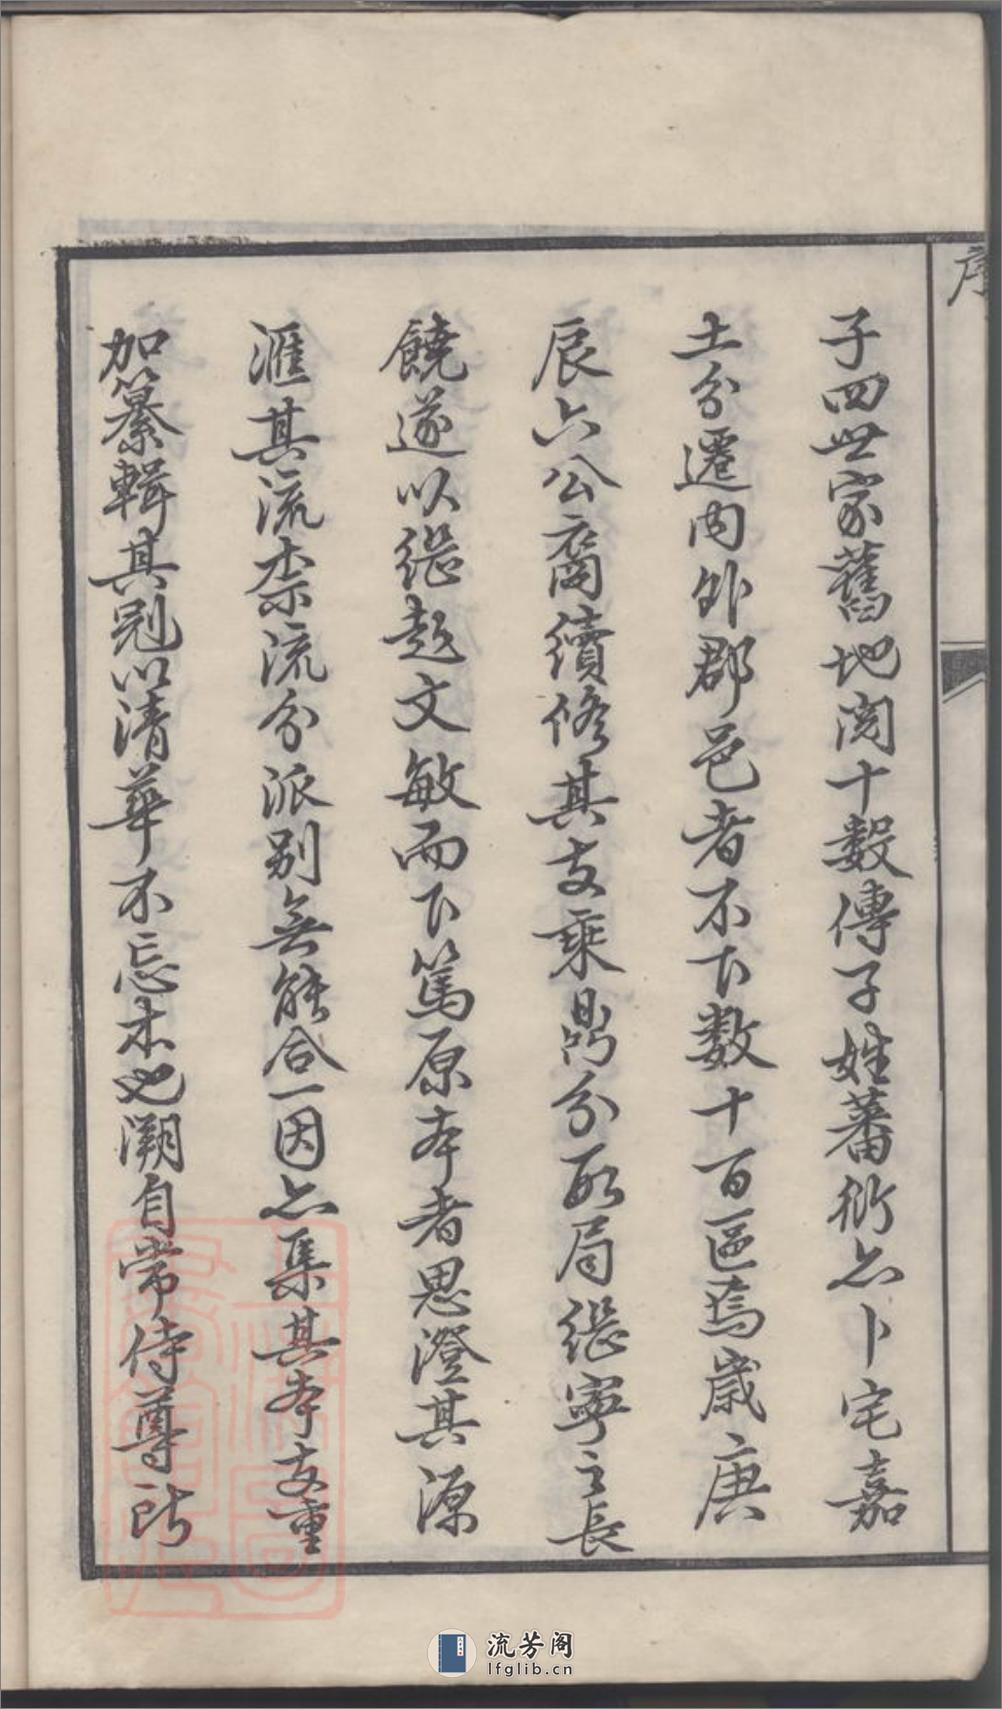 序
子四世家舊地閥十數傳子姓蕃衍亦卜宅嘉
土分遷內外郡邑者不下數十百區焉歲庚
辰六公裔續修其支乘鼎分而局縂寧之長
饒遂以縂趙文敏而下篤原本者思澄其源
滙其流柰流分派別無能合一因亦集其本支重
加纂輯其冠以清華不忘本也溯自常侍尊所
流芳阁
lfglib.cn